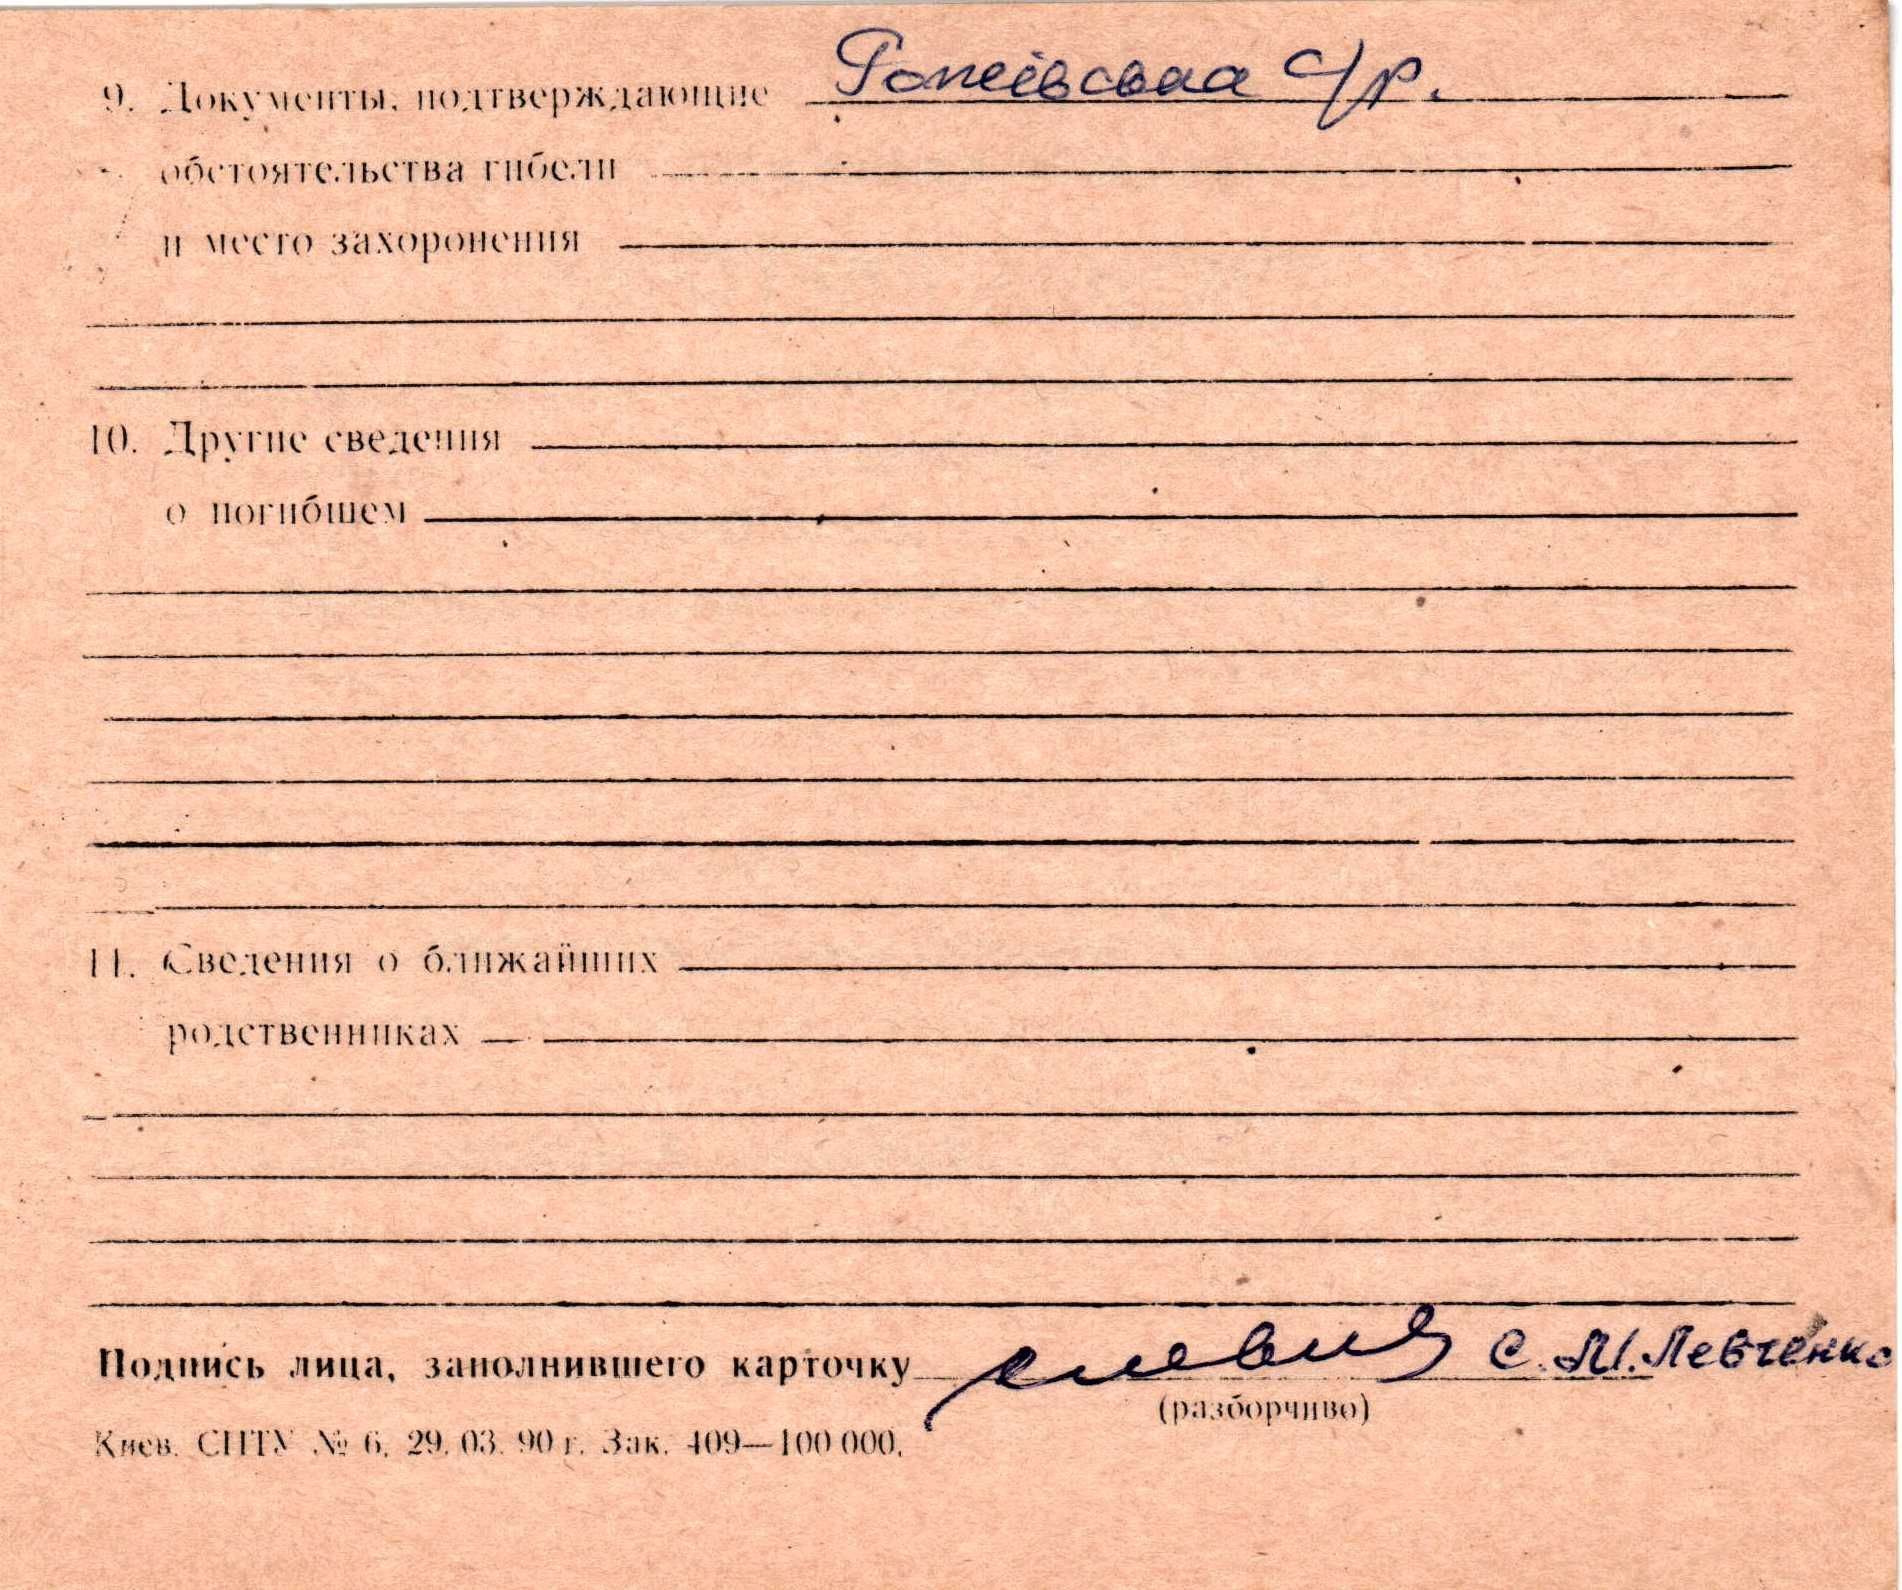 9. Документы, подтверждающие Гопеівсваа с/р.
обстоятельства гибели
и место захоронения
10. Другие сведения
о погибшем
11. Сведения о ближайших
родственниках
Подпись лица, заполнившего карточку С. М. Левченко
(разборчиво)
Киев. СПТУ № 6. 29. 03. 90 г. Зак. 409—100 000.